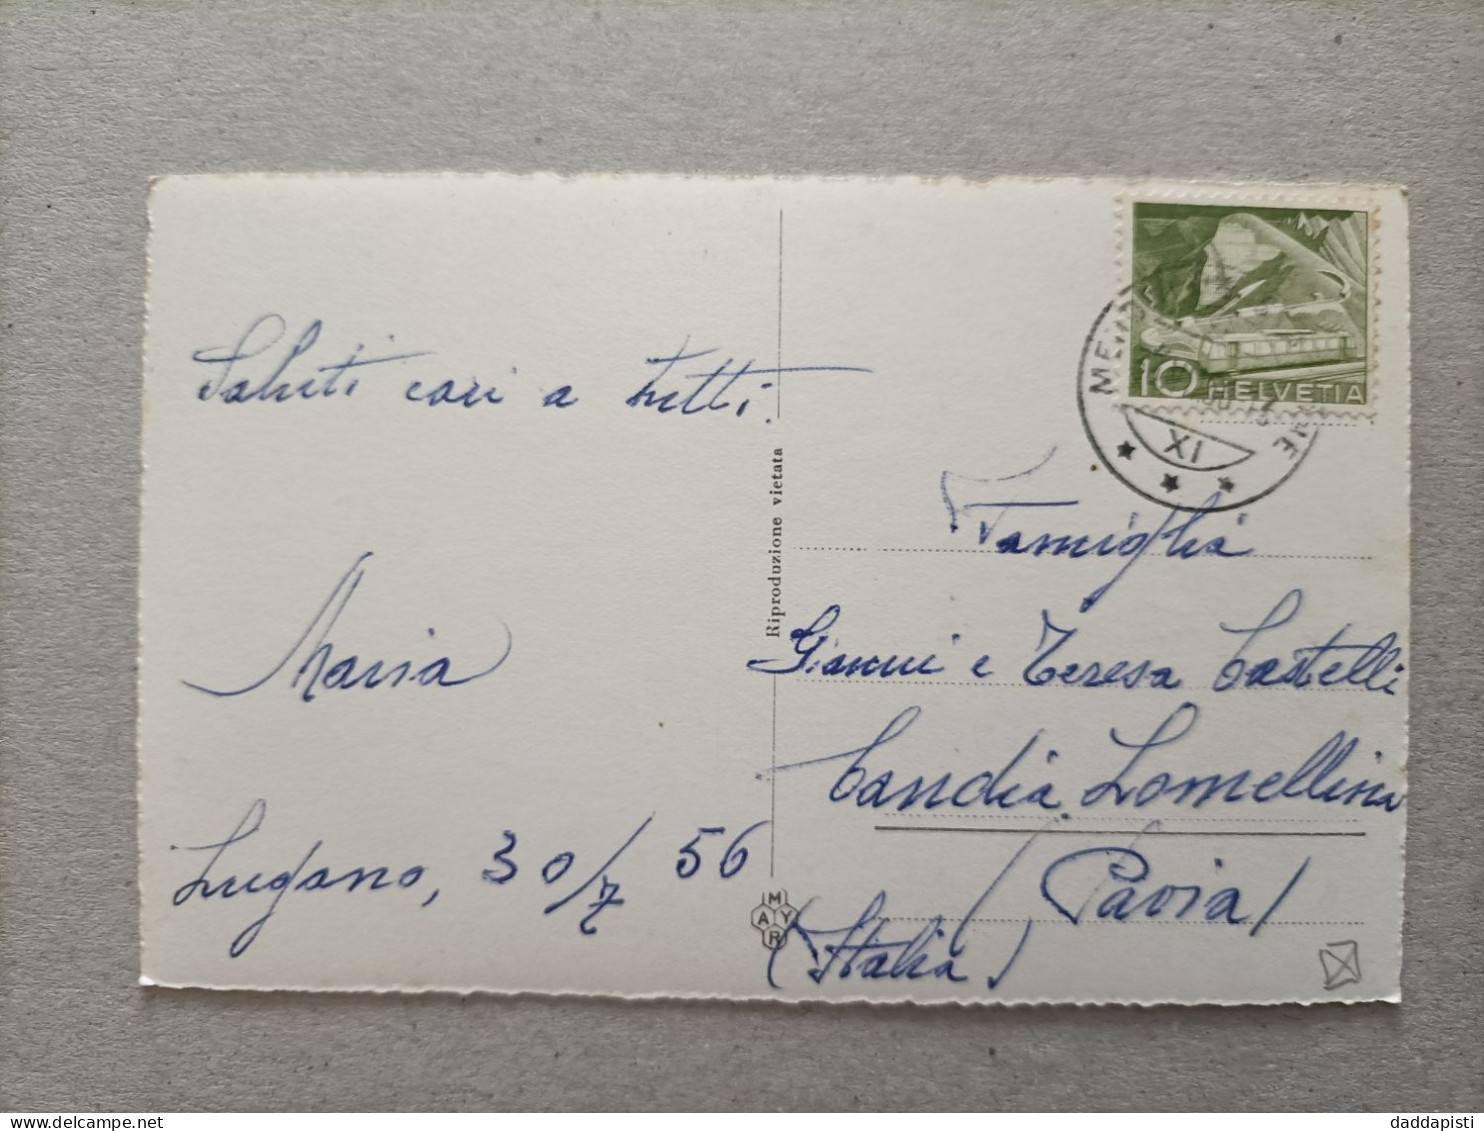 Saluti cari a tutti.
Maria
Lugano, 30/7 56
Riproduzione vietata
MAYR
10 HELVETIA
XI
Famiglia
Gianni e Teresa Castelli
Candia Lomellina
(Pavia)
(Italia)
daddapisti